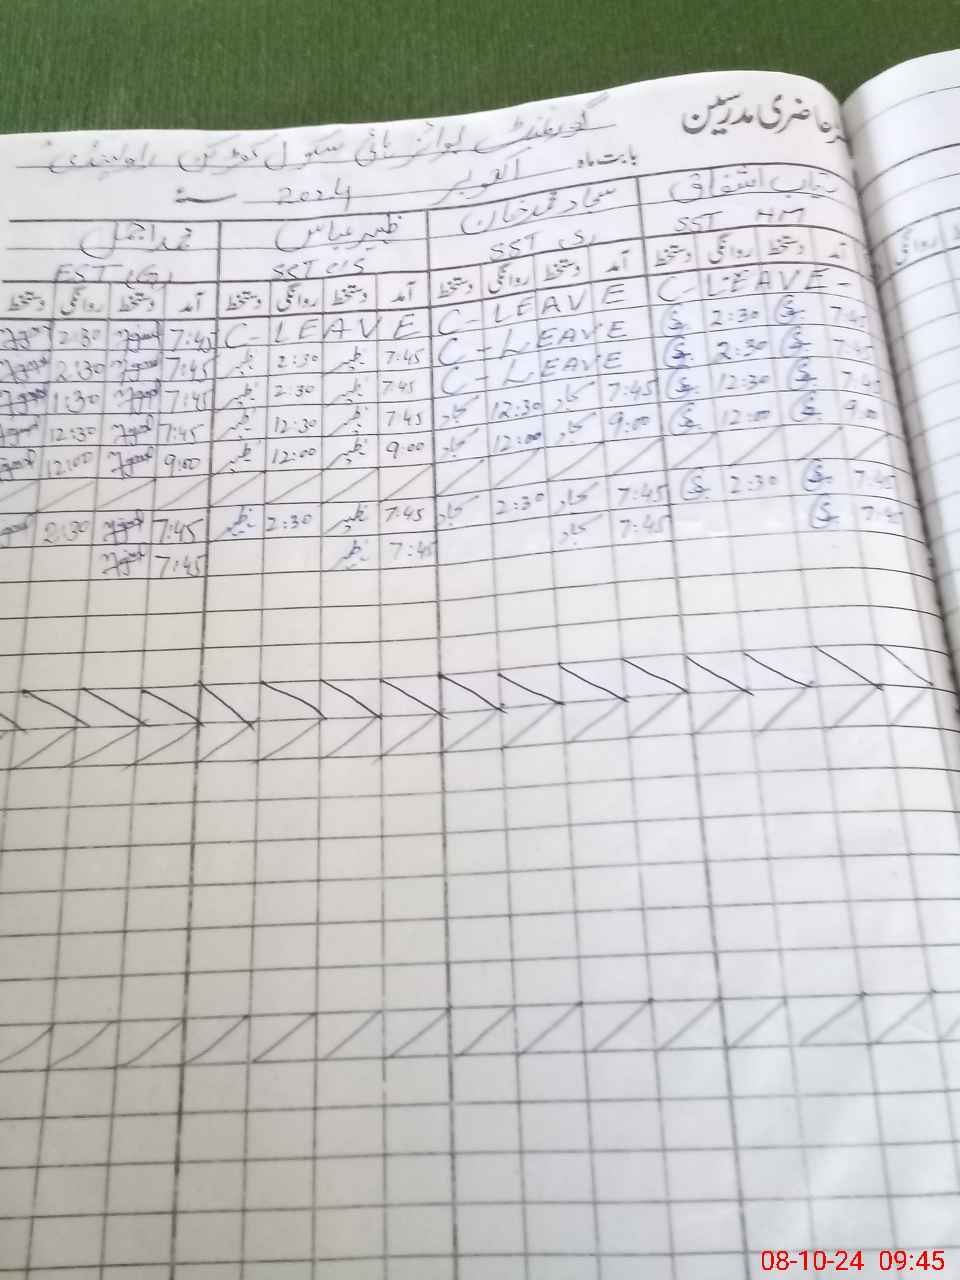 حاضری مدرسین گورنمنٹ بوائز ہائی سکول راولپنڈی
بابت ماہ اکتوبر 2024ء
اشفاق سجاد محمد خان ظہیر عباس محمد اجمل
SST HM SST SST C/S EST
آمد دستخط روانگی دستخط آمد دستخط روانگی دستخط آمد دستخط روانگی دستخط آمد دستخط روانگی دستخط
C-LEAVE- C-LEAVE C-LEAVE 7:45 2:30
7:45 2:30 C-LEAVE 7:45 ظہیر 2:30 ظہیر 7:45 2:30
7:45 2:30 C-LEAVE 7:45 ظہیر 2:30 ظہیر 7:45 1:30
7:45 12:30 7:45 سجاد 12:30 سجاد 7:45 ظہیر 12:30 ظہیر 7:45 12:30
9:00 12:00 9:00 سجاد 12:00 سجاد 9:00 ظہیر 12:00 ظہیر 9:00 12:00
7:45 2:30 7:45 سجاد 2:30 سجاد 7:45 ظہیر 2:30 ظہیر 7:45 2:30
7:45 7:45 سجاد 7:45 ظہیر 7:45
08-10-24 09:45